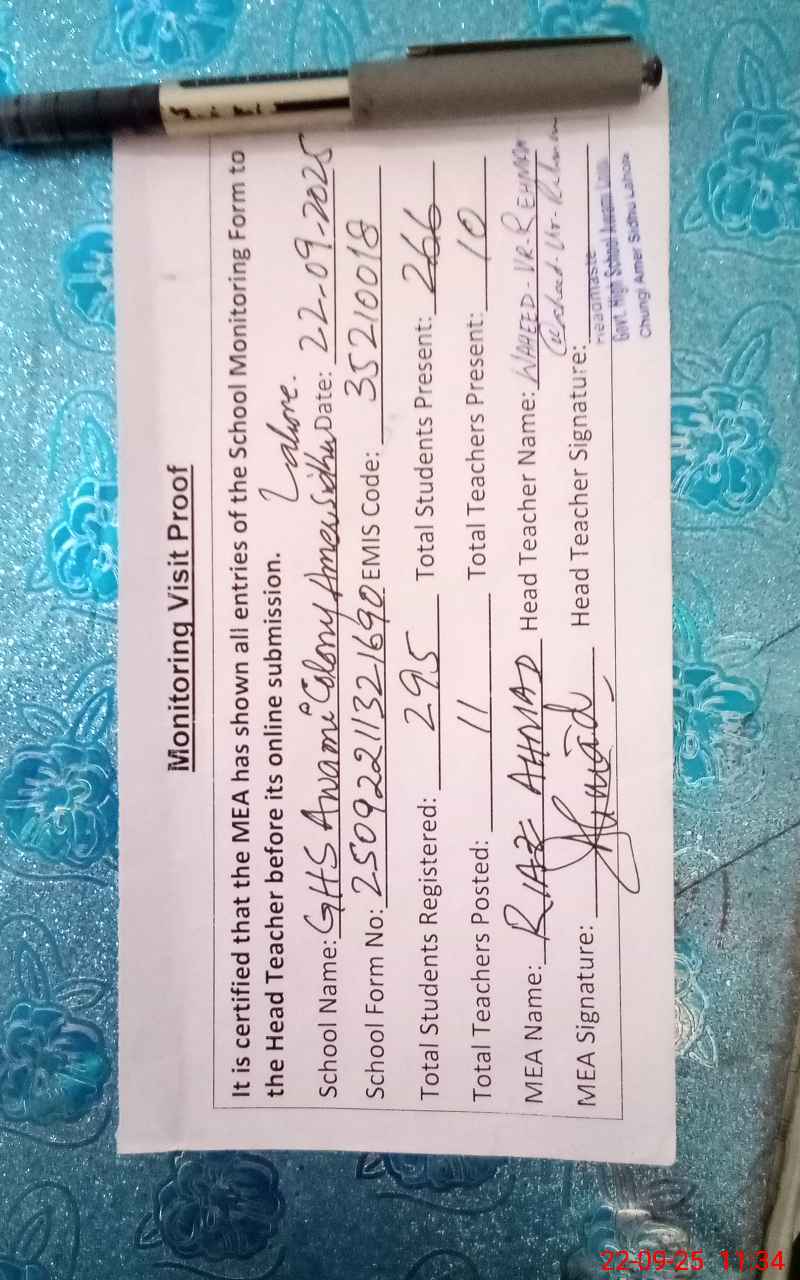 Monitoring Visit Proof
It is certified that the MEA has shown all entries of the School Monitoring Form to
the Head Teacher before its online submission.
Lahore.
School Name: GHS Awami Colony Amer Sidhu Date: 22-09-2025
School Form No: 2509221132 1690 EMIS Code: 35210018
Total Students Registered: 295 Total Students Present: 266
Total Teachers Posted: 11 Total Teachers Present: 10
MEA Name: RIAZ AHMAD Head Teacher Name: WAHEED-UR-REHMAN
Waheed-Ur-Rehman
MEA Signature: Ahmad Head Teacher Signature:
Headmaste
Govt. High School Awami
Chungi Amer Sidhu Lahore
22-09-25 11:34